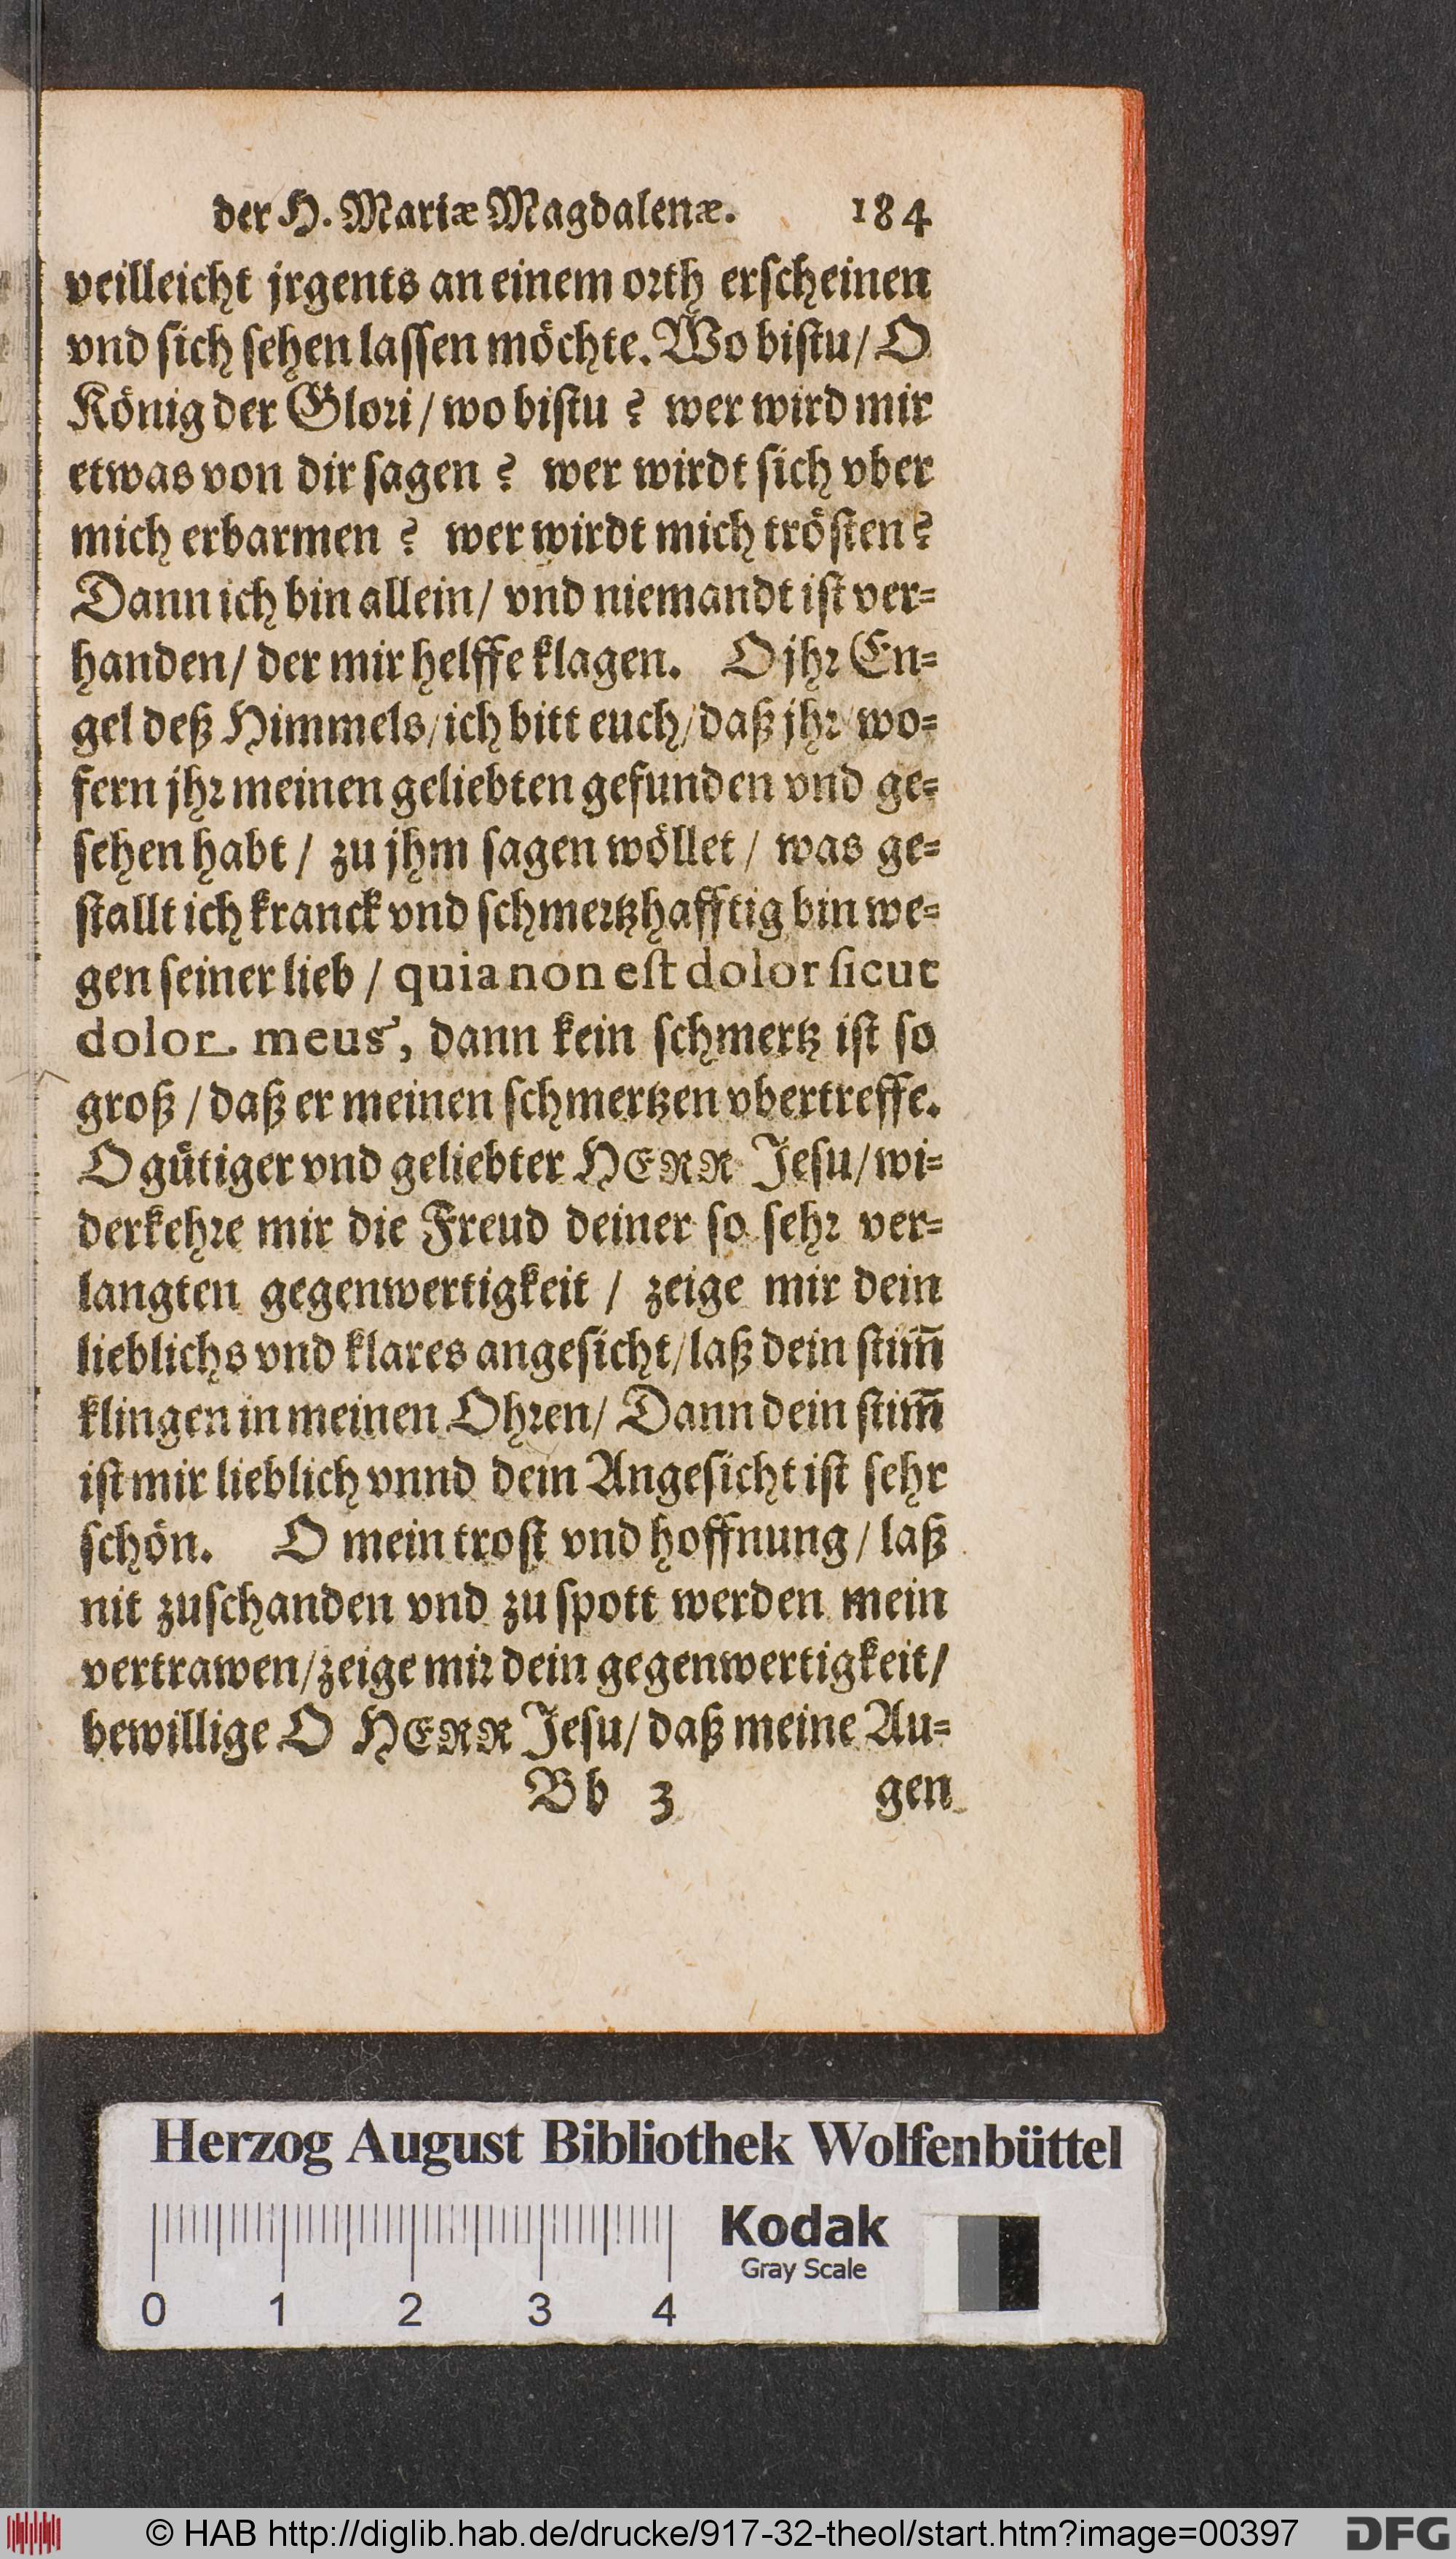 der H. Mariæ Magdalenæ. 184
veilleicht jrgents an einem orth erscheinen
vnd sich sehen lassen möchte. Wo bistu / O
König der Glori / wo bistu ? wer wird mir
etwas von dir sagen ? wer wirdt sich vber
mich erbarmen ? wer wirdt mich trösten ?
Dann ich bin allein / vnd niemandt ist ver-
handen / der mir helffe klagen. O jhr En-
gel deß Himmels / ich bitt euch / daß jhr / wo-
fern jhr meinen geliebten gefunden vnd ge-
sehen habt / zu jhm sagen wöllet / was ge-
stallt ich kranck vnd schmertzhafftig bin we-
gen seiner lieb / quia non est dolor sicut
dolor meus, dann kein schmertz ist so
groß / daß er meinen schmertzen vbertreffe.
O gütiger vnd geliebter HERR Jesu / wi-
derkehre mir die Freud deiner so sehr ver-
langten gegenwertigkeit / zeige mir dein
lieblichs vnd klares angesicht / laß dein stim̃
klingen in meinen Ohren / Dann dein stim̃
ist mir lieblich vnnd dein Angesicht ist sehr
schön. O mein trost vnd hoffnung / laß
nit zuschanden vnd zu spott werden mein
vertrawen / zeige mir dein gegenwertigkeit /
bewillige O HERR Jesu / daß meine Au-
Bb 3 gen
Herzog August Bibliothek Wolfenbüttel
Kodak
Gray Scale
0 1 2 3 4
© HAB http://diglib.hab.de/drucke/917-32-theol/start.htm?image=00397
DFG